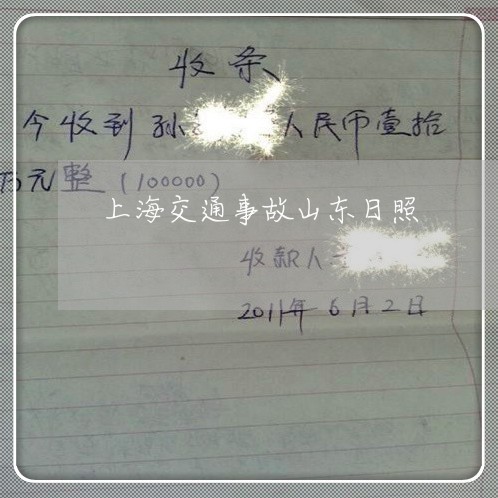 收条
今收到孙 人民币壹拾
万元整（100000）
上海交通事故山东日照
收款人
2011年6月2日